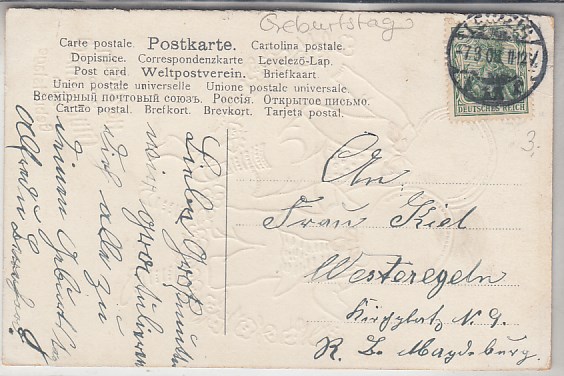 Geburtstag
Carte postale. Postkarte. Cartolina postale.
Dopisnice. Correspondenzkarte Levelező-Lap.
Post card. Weltpostverein. Briefkaart
Union postale universelle. Unione postale universale.
Всемірный почтовый союзъ. Россія. Открытое письмо.
Cartão postal. Brefkort. Brevkort. Tarjeta postal.
DEUTSCHES REICH
3.
An
Frau Kiel
Westeregeln
Kirchplatz N. 9.
R. B. Magdeburg.
Liebe Großmutter
wir gratulieren
Dir alle zu
Deinem